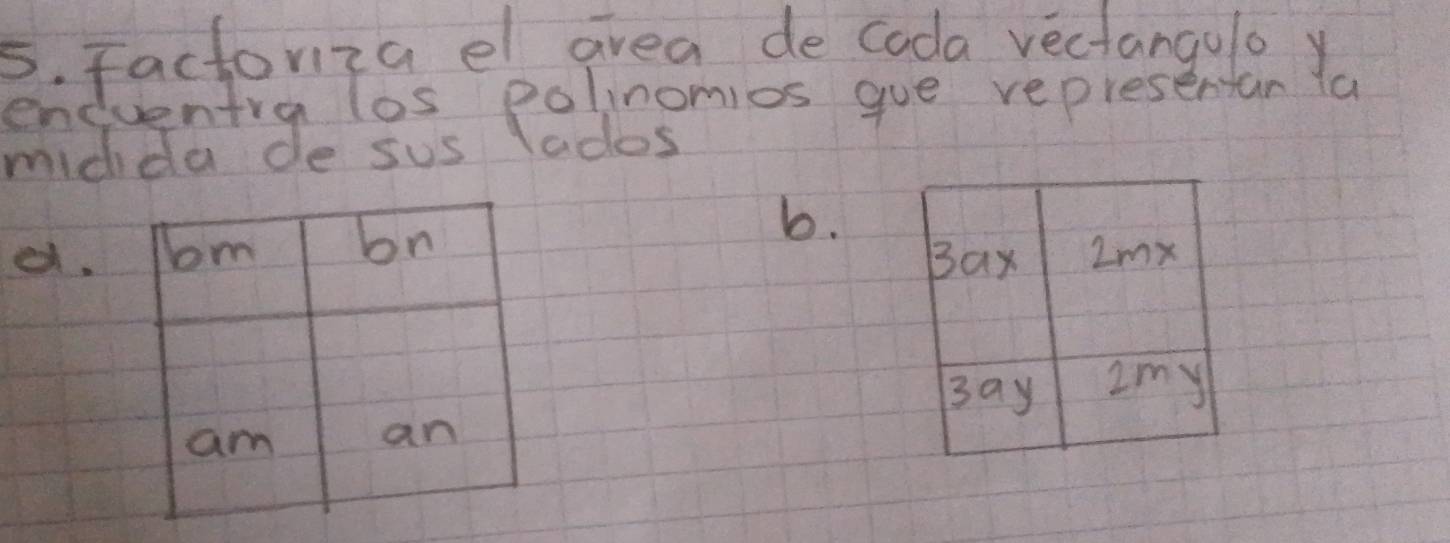 5. Factoriza el área de cada réctangulo y
encuentra los polinomios que representan la
midida de sus lados
a. bm bn
am an
b. 3ax 2mx
3ay 2my